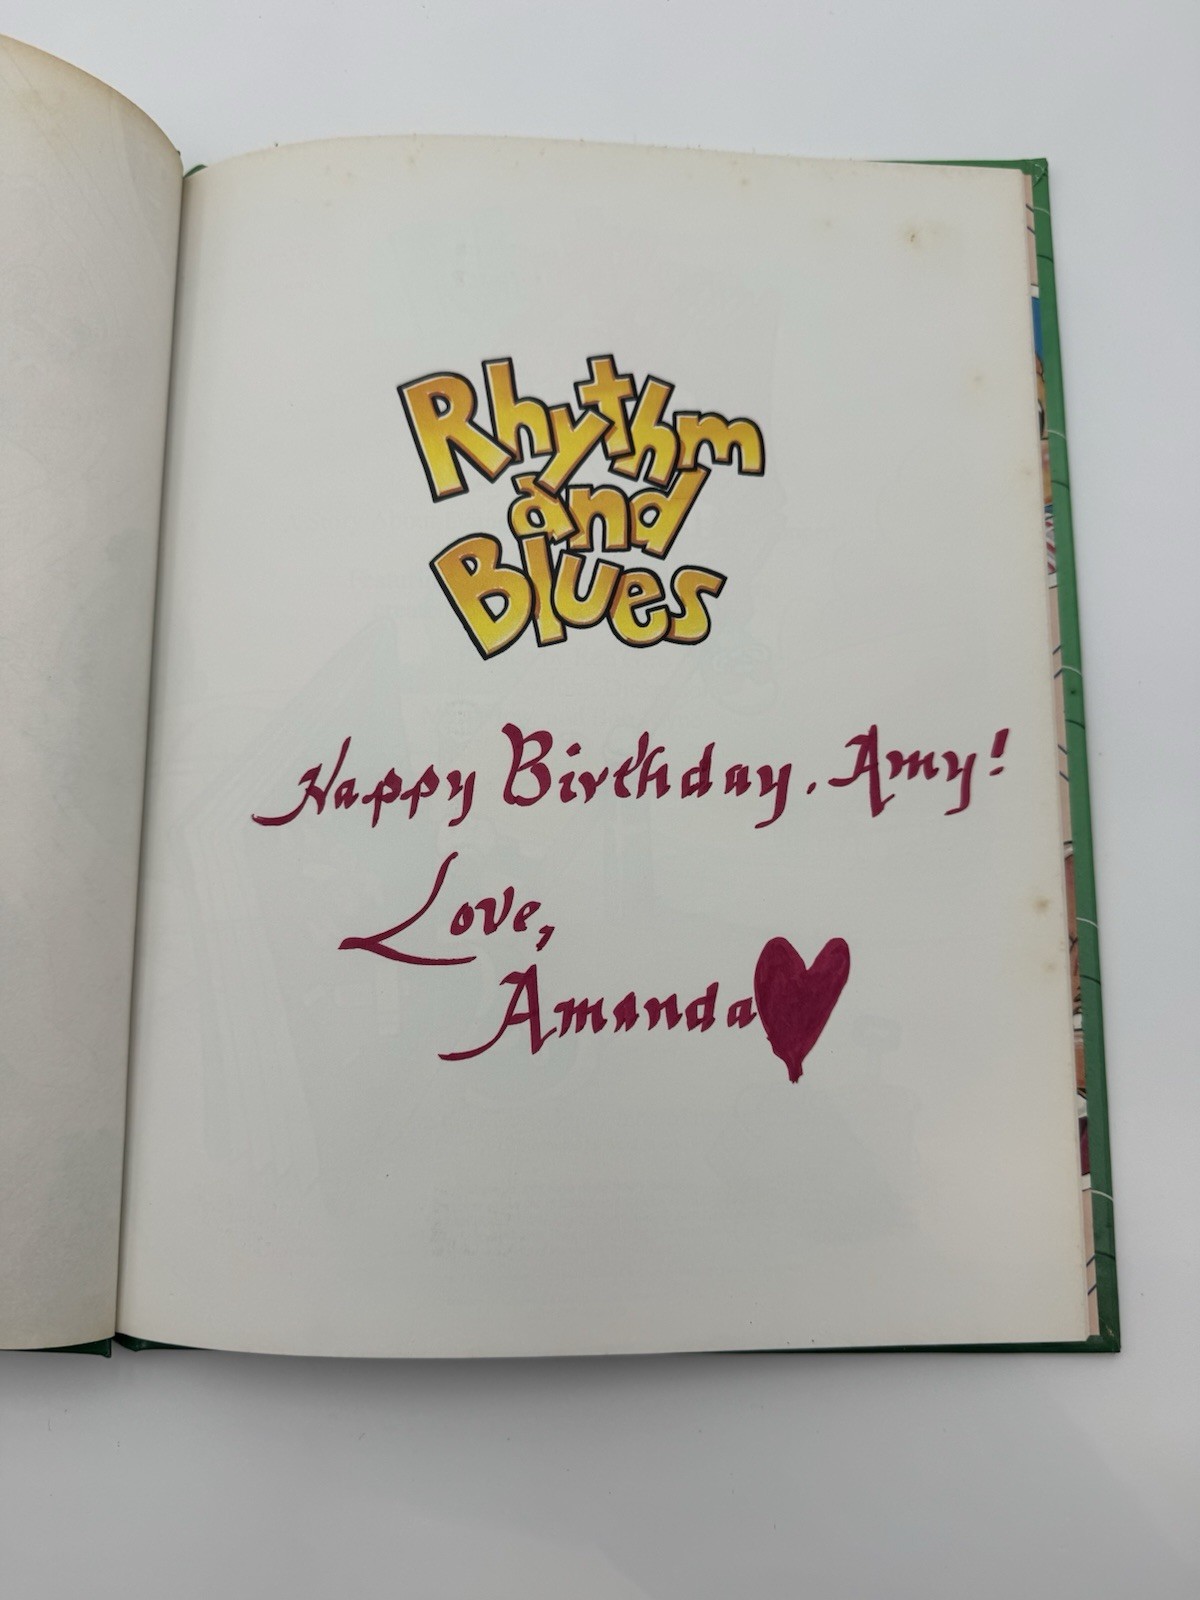 Rhythm
and
Blues
Happy Birthday, Amy!
Love,
Amanda